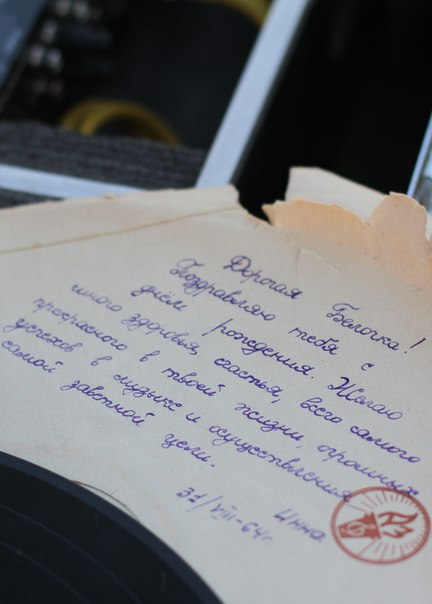 Дорогая Белочка!
Поздравляю тебя с
днём рождения. Желаю
много здоровья, счастья, всего самого
прекрасного в твоей жизни, огромных
успехов в музыке и осуществления
самой заветной цели.
Инна
31/VIII-64г.